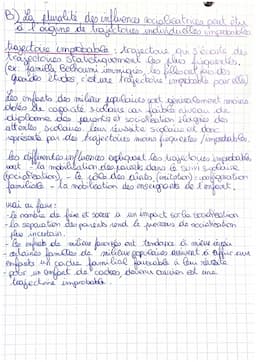 B) La pluralité des influences socialisatrices peut être
à l'origine de trajectoires individuelles improbables
trajectoire improbable : trajectoire qui s'écarte des
trajectoires statistiquement les plus fréquentes.
(ex famille Belhoumi immigrés, les filles ont fait des
grandes études, c'est une trajectoire improbable pour elles)
Les enfants des milieux populaires sont généralement moins
dotés de capacité scolaire au faible niveau de
diplôme des parents et socialisation éloignée des
attentes scolaires. Leur réussite scolaire est donc
représenté par des trajectoires moins fréquentes / improbables.
Les différentes influences expliquant les trajectoires improbables
sont - la mobilisation des parents dans le suivi scolaire
(socialisation). - Le rôle des aînés (imitation) : configuration
familiale - la mobilisation des enseignants de l'enfant.
vrai ou faux :
- le nombre de frère et soeur a un impact sur la socialisation
- la séparation des parents rend le processus de socialisation
plus incertain.
- Les enfants de milieu favorisé ont tendance à mieux réussir
- certaines familles de milieu populaires arrivent à offrir aux
enfants un cadre familial favorable à leur réussite
- pour un enfant de cadres, devenir ouvrier est une
trajectoire improbable.